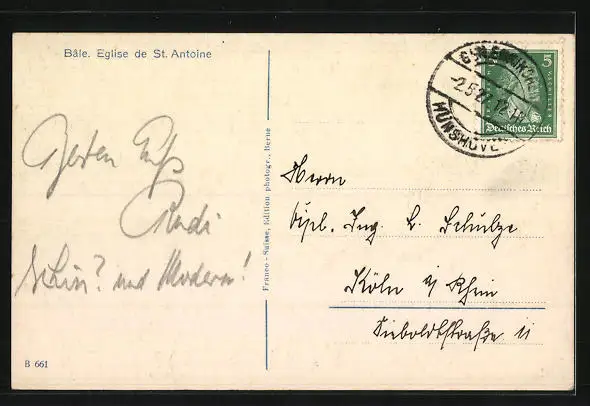 Bâle. Eglise de St. Antoine
Besten Gruß
Rudi
Schön? und Modern!
B 661
Franco-Suisse, Edition photogr., Berne
2.5.27.12
5
Deutsches Reich
Herrn
Dipl. Ing. E. Schulze
Köln a/ Rhein
Sieboldtstraße 11